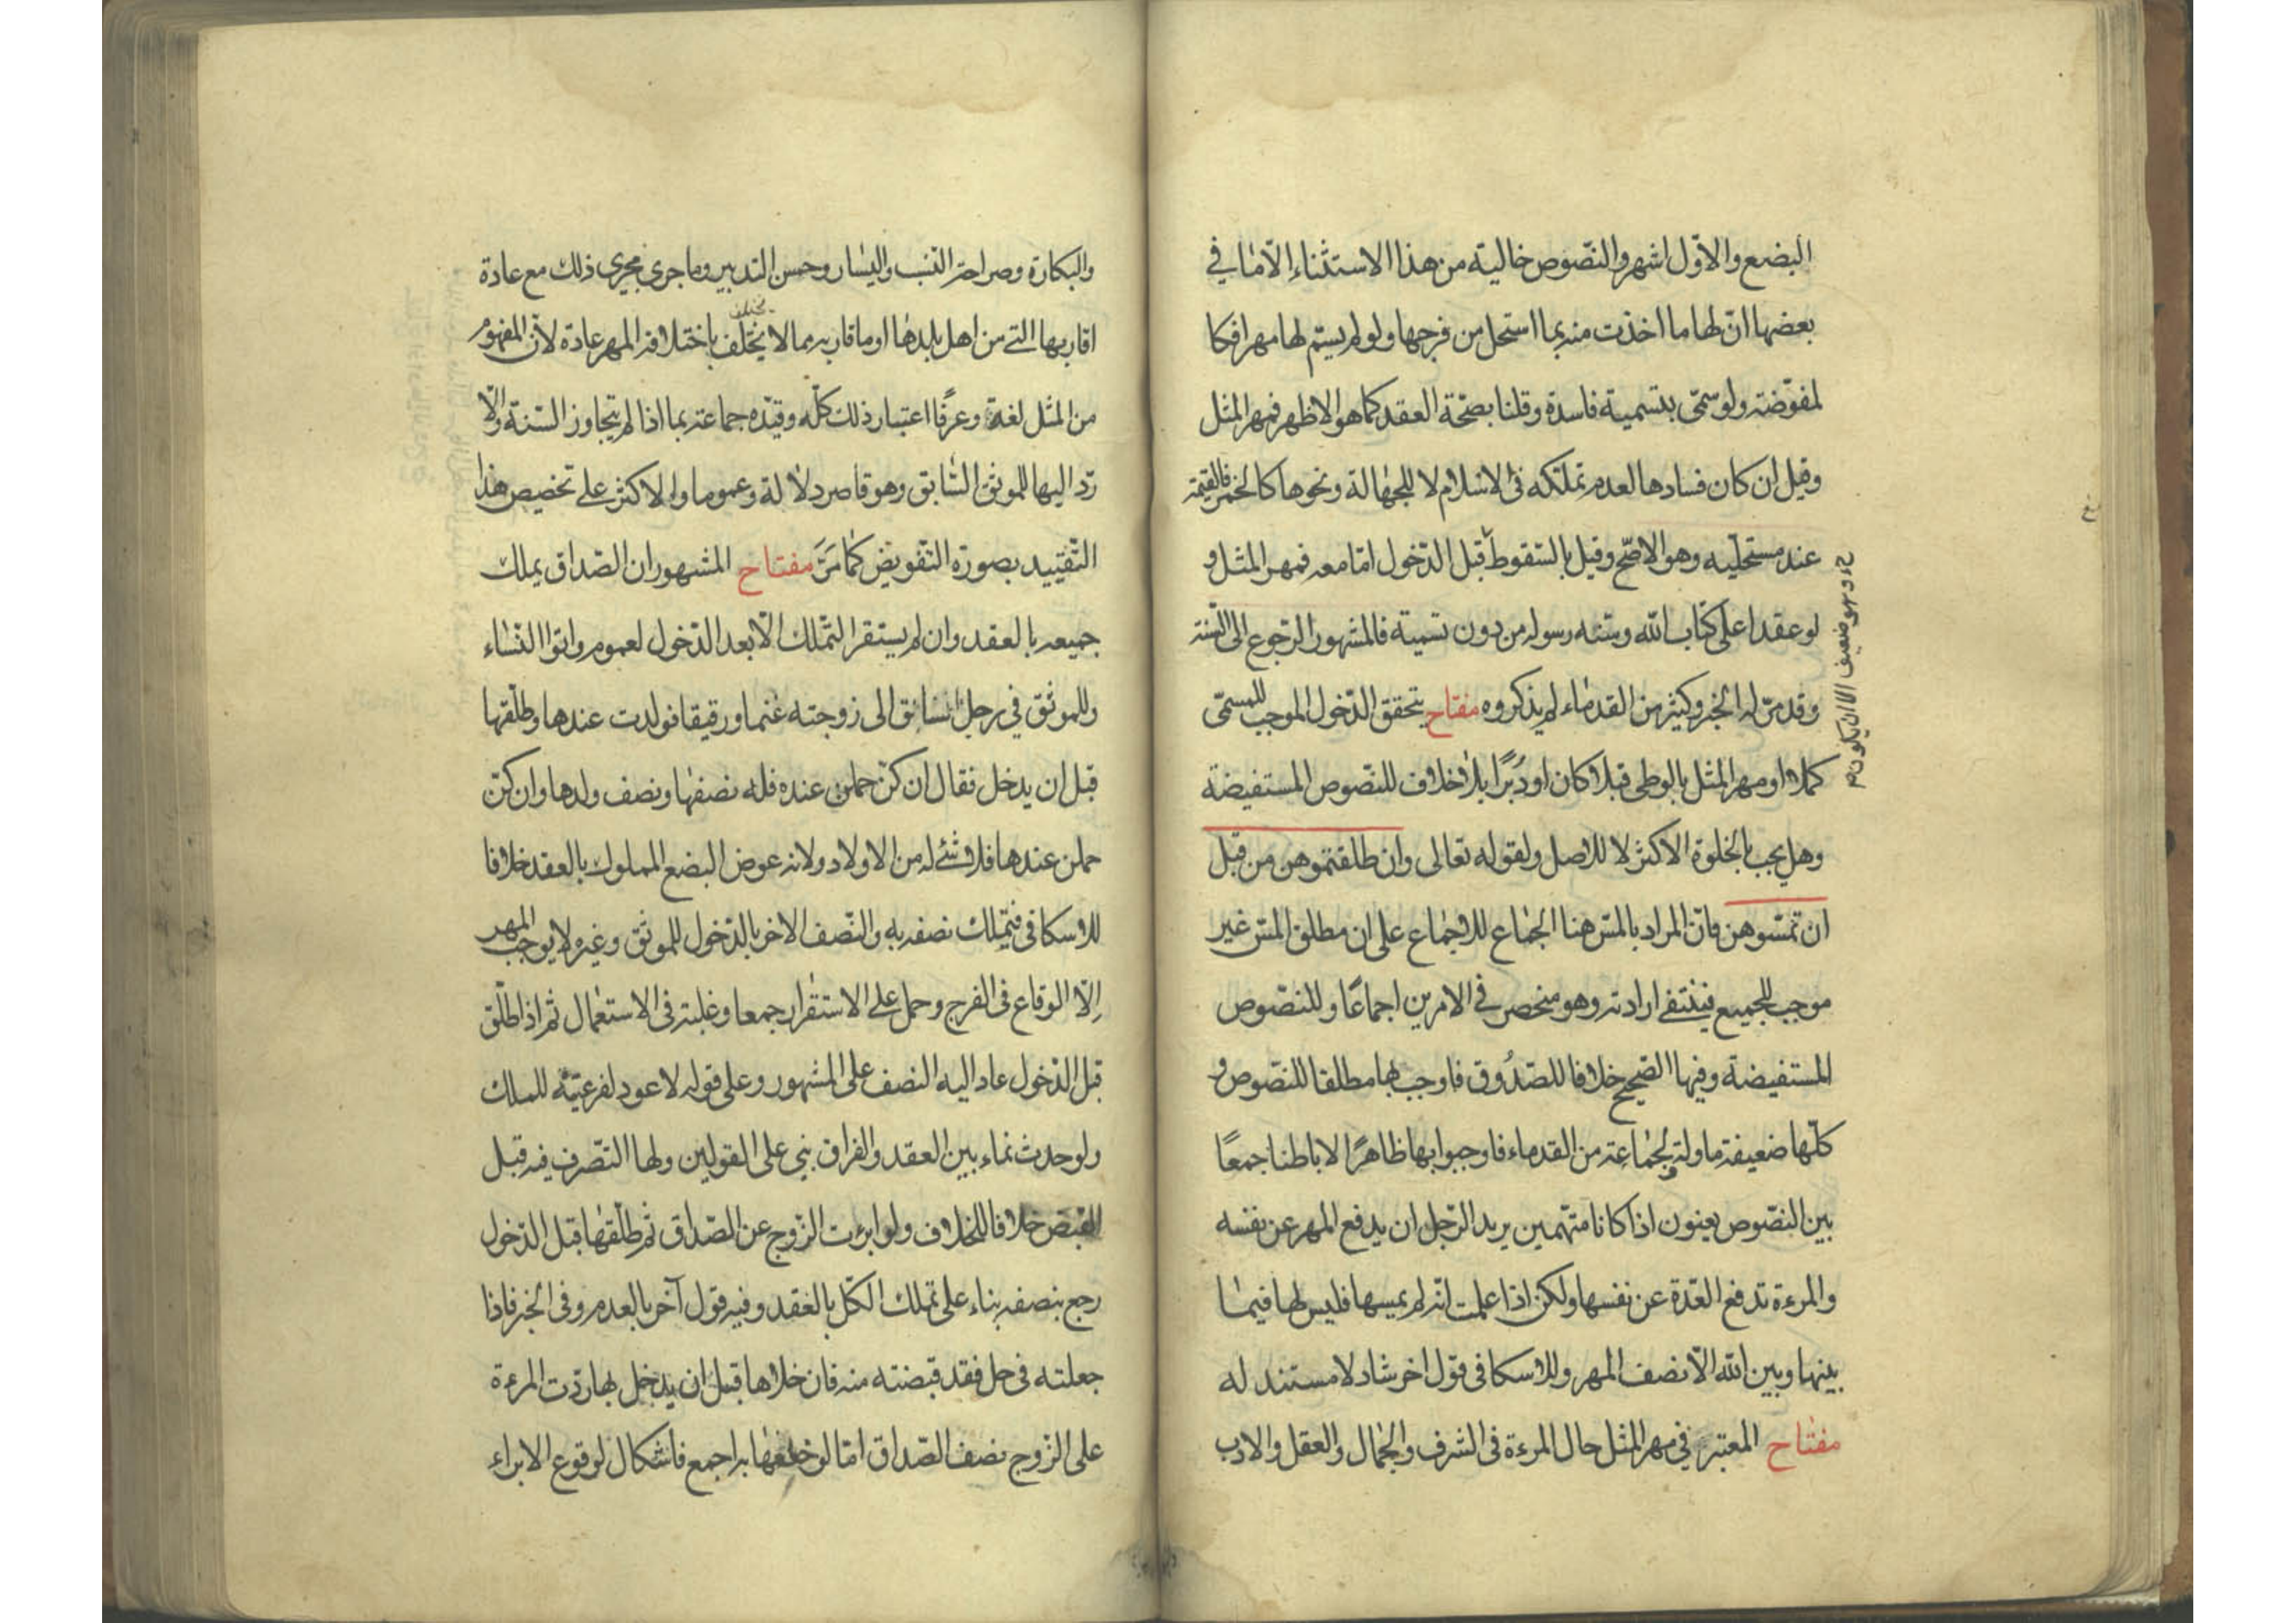 البضع والاوّل اشهر والنّصوص خالية من هذا الاستثناء الّا ما في
بعضها انّ لها ما اخذت منه بما استحل من فرجها ولو لم يسّم لها مهرا فكا
لمفوّضة ولو سمّى بتسمية فاسدة وقلنا بصحّة العقد كما هو الاظهر فمهر المثل
وقيل ان كان فسادها لعدم تملّكه فى الاسلام لا للجهالة ونحوها كالخمر فالقيمة
عند مستحليه وهو الاصّح وقيل بالسّقوط قبل الدّخول امّا معه فمهر المثل و
لو عقدا على كتاب الله وسنّه رسوله من دون تسمية فالمشهور الرّجوع الى السّنة
وقد مرّ له الخبر وكثير من القدماء لم يذكروه مفتاح يتحقق الدّخول الموجب للمسمّى
كملا او مهر المثل بالوطى قبلا كان او دُبرًا بلا خلاف للنّصوص المستفيضة
وهل يجب بالخلوة الاكثر لا للاصل ولقوله تعالى وان طلقتموهن من قبل
ان تمسّوهن فانّ المراد بالمسّ هنا الجماع للاجماع على ان مطلق المسّ غير
موجب للجميع فينتفى ارادته وهو منحصر في الامرين اجماعًا وللنّصوص
المستفيضة وفيها الصّحيح خلافا للصّدُوق فاوجب بها مطلقا للنّصوص و
كلّها ضعيفة ماولة ولجماعة من القدماء فاوجبوا بها ظاهرًا لا باطنا جمعًا
بين النّصوص يعنون اذا كانا متّهمين يريد الرّجل ان يدفع المهر عن نفسه
والمرءة تدفع العّدة عن نفسها ولكن اذا علمت انّه لم يمسها فليس لها فيما
بينها وبين الله الّا نصف المهر وللاسكافى قول اخر شاد لا مستند له
مفتاح المعتبر في مهر المثل حال المرءة فى الشرف والجمال والعقل والادب
وهو ضعيف الا ان يكون
والبكارة وصراحة النّسب واليسار وحسن التدبير وما جرى مجرى ذلك مع عادة
اقاربها التى من اهل بلدها او ما قاربه مما لا يختلف باختلافه المهر عادة لانّ المفهوم
يختلف
من المثل لغة وعرفًا اعتبار ذلك كلّه وقيّده جماعة بما اذا لم يتجاوز السّنة والّا
ردّ اليها للموثق السّابق وهو قاصر دلالة وعموما والاكثر على تخصيص هذا
التّقييد بصورة التّفويض كما مرَّ مفتاح المشهور ان الصّداق يملك
جميعه بالعقد وان لم يستقر التّملك الّا بعد الدّخول لعموم واتوا النّساء
وللموثّق في رجل ساق الى زوجته غنما ورقيقا فولدت عندها وطلّقها
قبل ان يدخل فقال ان كنّ حملن عنده فله نصفها ونصف ولدها وان كنّ
حملن عندها فلا شئ له من الاولاد ولانه عوض البضع المملوك بالعقد خلافا
للاسكافى فتملك نصفه به والنّصف الاخر بالدّخول للموثق وغيره لا يوجب المهر
إلّا الوقاع فى الفرج وحمل على الاستقرار جمعا وغلبته فى الاستعمال ثم اذا طلّق
قبل الدّخول عاد اليه النصف على المشهور وعلى قوله لا عود لفرعيّة للملك
ولو حدث نماء بين العقد والفراق بنى على القولين ولها التّصرف فيه قبل
القبض خلافا للخلاف ولو ابرءت الزّوج عن الصّداق ثم طلّقها قبل الدّخول
رجع بنصفه بناء على تملك الكلّ بالعقد وفيه قول آخر بالعدم وفى الخبر فاذا
جعلته فى حل فقد قبضته منه فان خلاها قبل ان يدخل بها ردّت المرءة
على الزّوج نصف الصّداق امّا لو خلعها به اجمع فاشكال لوقوع الابراء